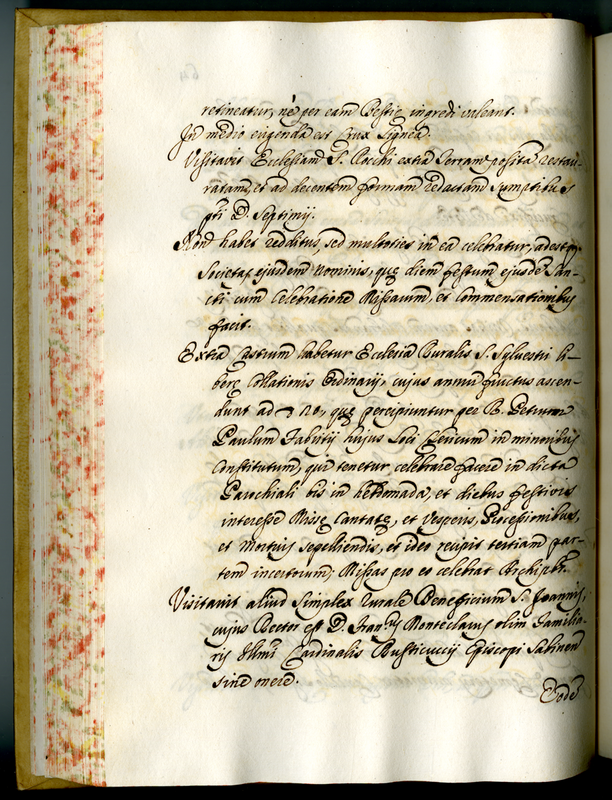 retineatur, nè per eam Bestie ingredi valeant.
In medio erigenda est Crux lignea.
Visitavit Ecclesiam S. Rocchi extra Terram posita restau-
ratam, et ad decentem formam redactam sumptibus
pti D. Septimij.
Non habet redditus, sed multoties in ea celebratur, adest
Societas ejusdem nominis, que diem festum ejusdē San-
cti cum Celebratione Missarum, et Commensationibus
facit.
Extra Castrum habetur Ecclesia Ruralis S. Sylvestri li-
bere Collationis Ordinarij, cujus annui fructus ascen-
dunt ad 20, que percipiuntur per B. Petrum
Paulum Fabritij hujus Loci Clericum in minoribus
Constitutum, qui tenetur celebrare facere in dicta
Parochiali bis in hebdomada, et diebus festivis
interesse Misse Cantate, et Vesperis, Processionibus,
et Mortuis sepelliendis, et ideo recipit tertiam par-
tem incertorum; Missas pro eo celebrat Archipbr.
Visitavit aliud simplex rurale Beneficium S. Joannis,
cujus Rector est D. Fran.cus Monteclarus olim familia-
ris Illmi Cardinalis Rusticuccij Episcopi Sabinen
sine onere.
Eodē